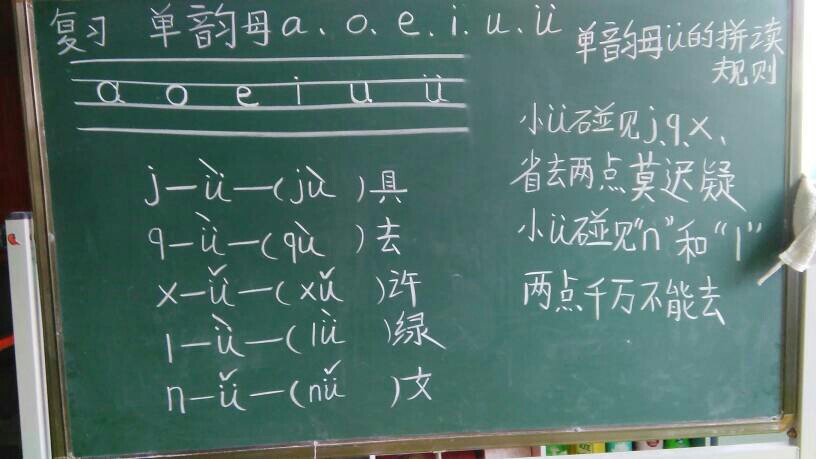 复习 单韵母 a、o、e、i、u、ü
a o e i u ü
j—ǜ—(jù)具
q—ǜ—(qù)去
x—ǚ—(xǔ)许
l—ǜ—(lǜ)绿
n—ǚ—(nǚ)文
单韵母ü的拼读
规则
小ü碰见j、q、x、
省去两点莫迟疑
小ü碰见“n”和“l”
两点千万不能去